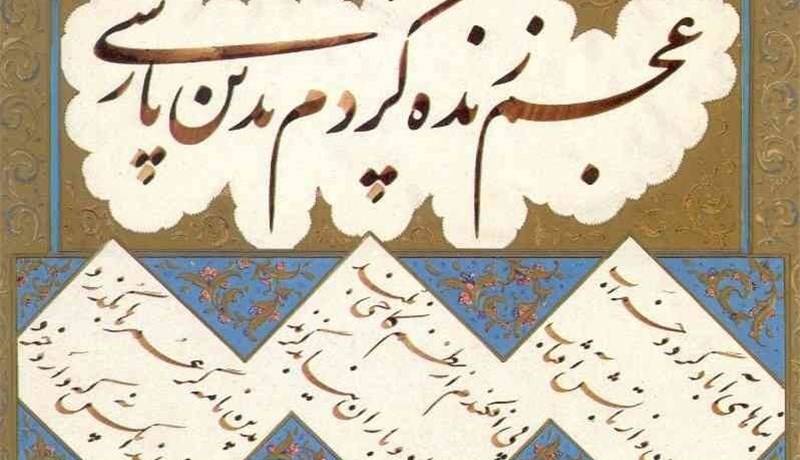 عجم زنده کردم بدین پارسی
بناهای آباد گردد خراب
و از تابش آفتاب
پی افکندم از نظم کاخی بلند
و باران نیابد گزند
بدین نامه گر عمرها بگذرد
که دارد خرد